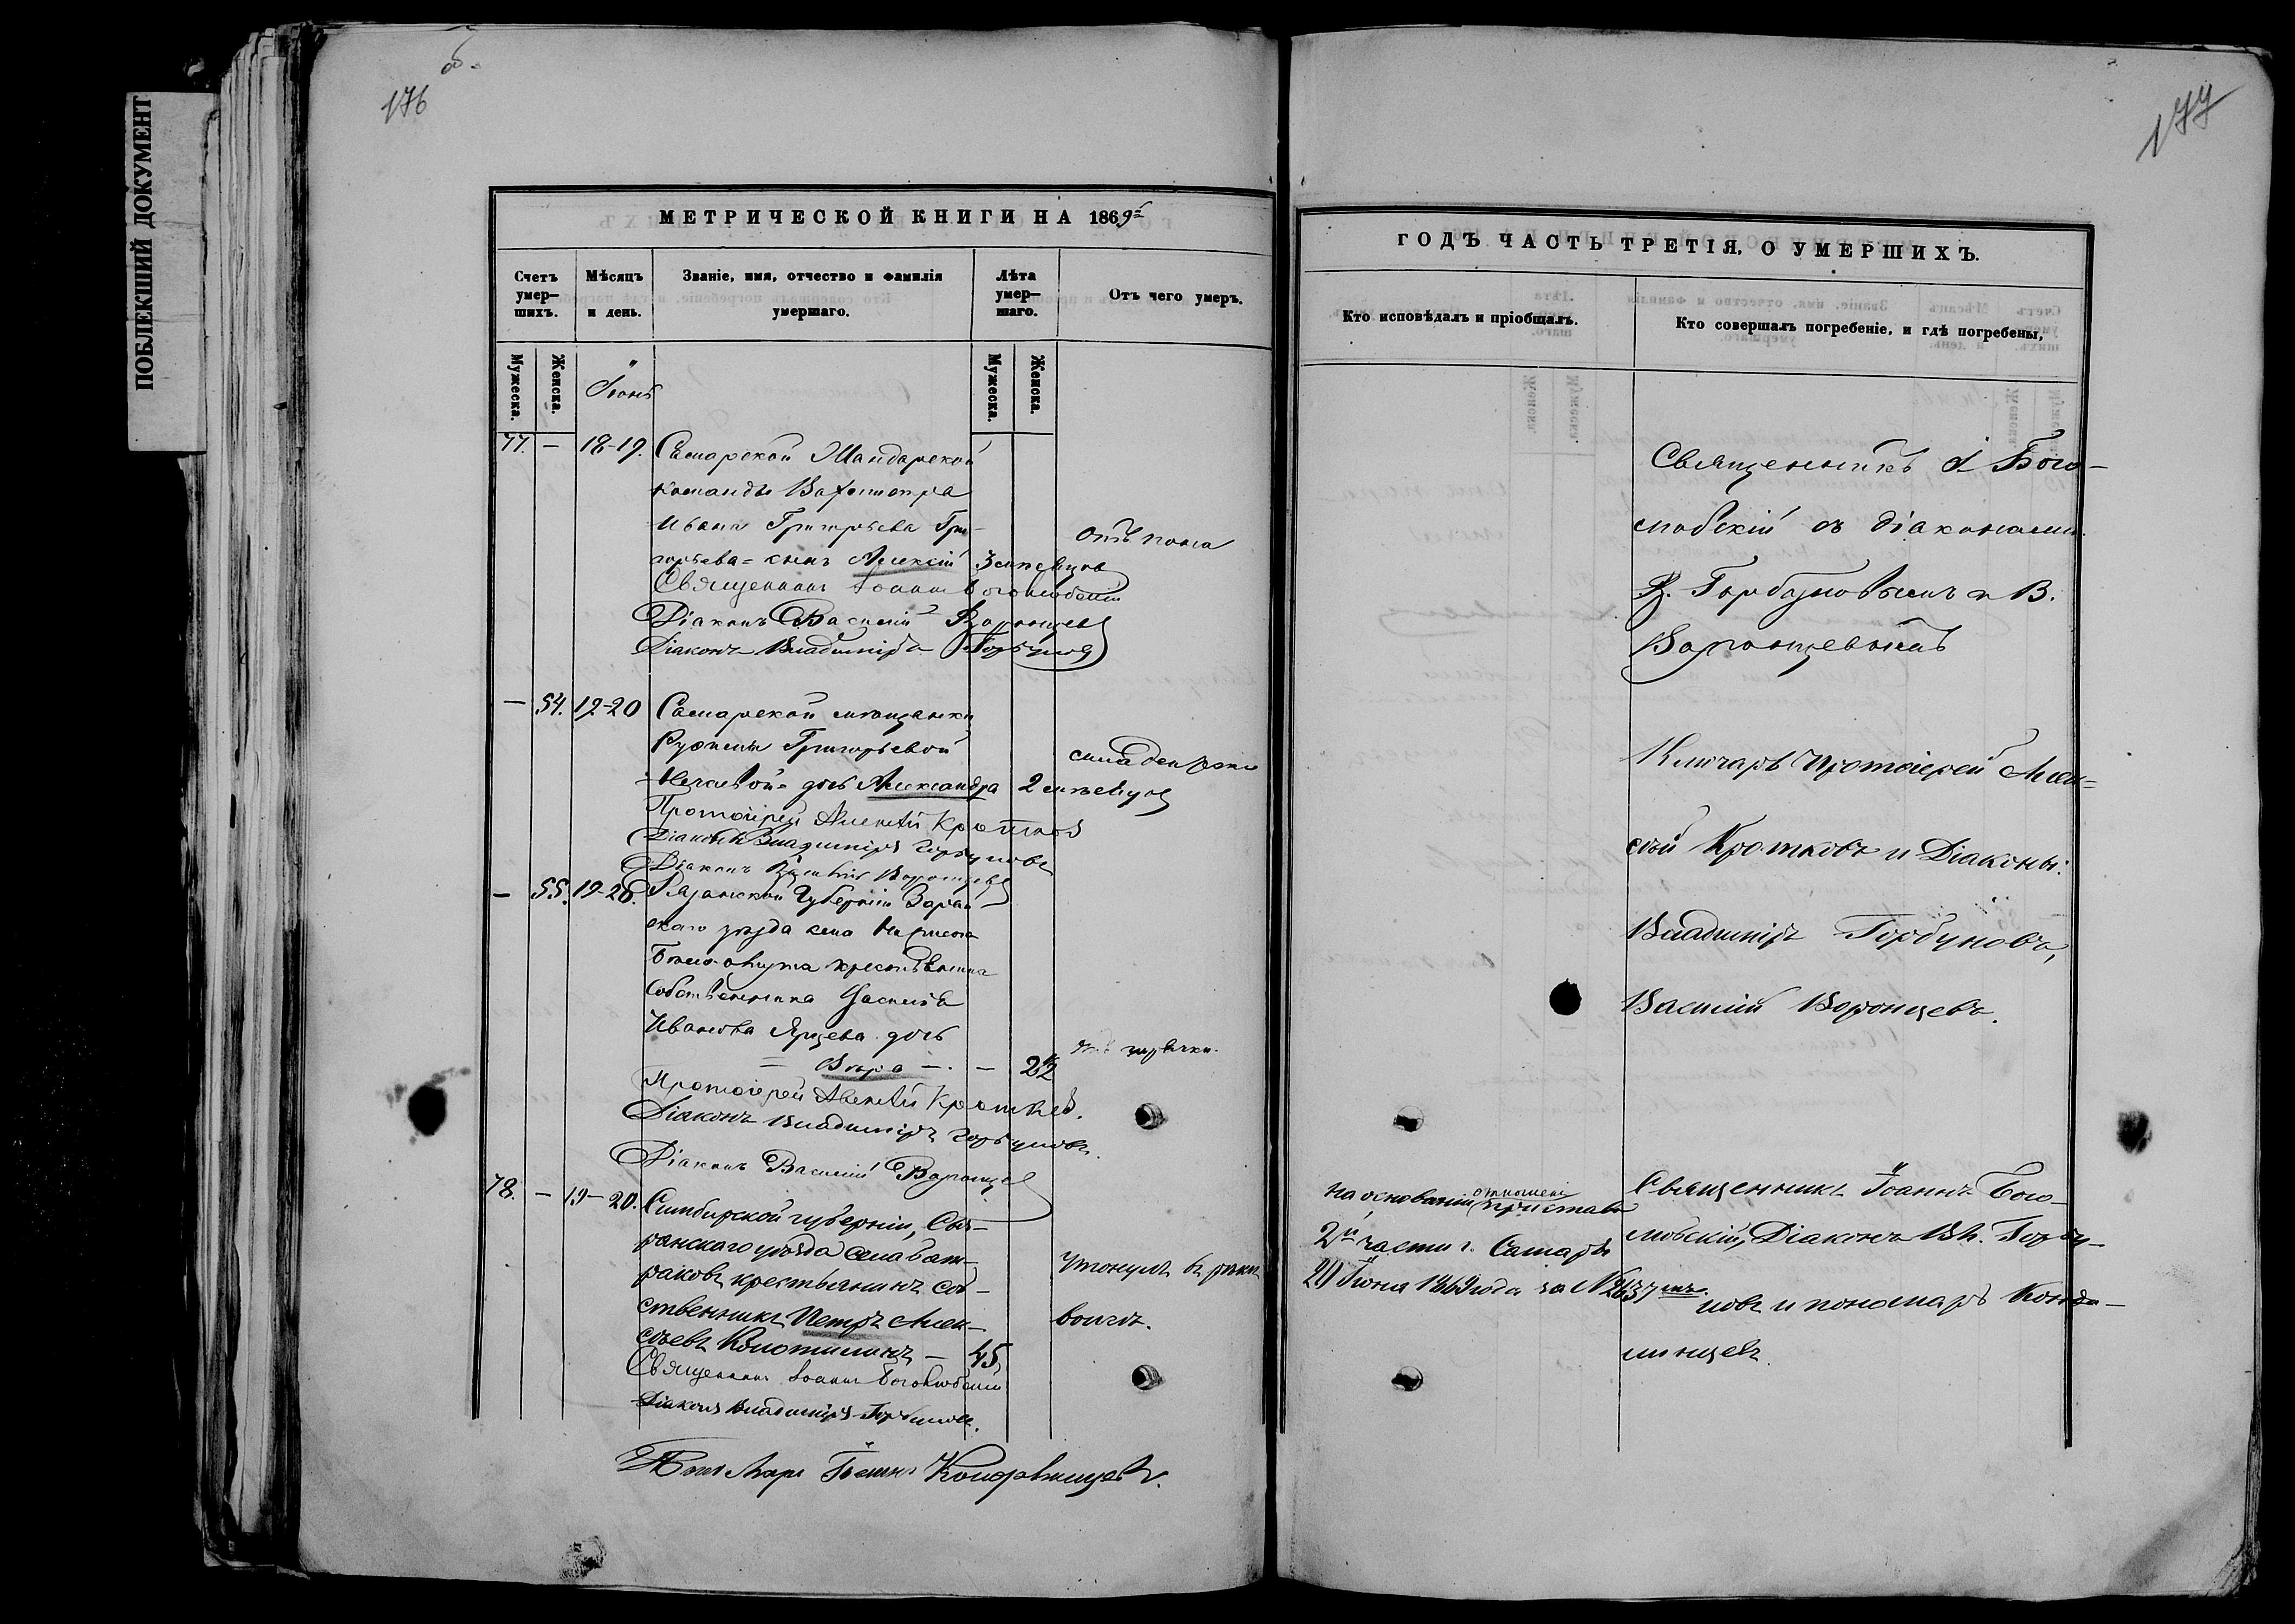 ПОБЛЕКШИЙ ДОКУМЕНТ
176 об.
МЕТРИЧЕСКОЙ КНИГИ НА 1869й
Счетъ умер-шихъ.
Мѣсяцъ и день.
Званіе, имя, отчество и фамилія умершаго.
Лѣта умер-шаго.
Отъ чего умеръ.
Мужеска.
Женска.
Мужеска.
Женска.
Іюнь
77. — 18-19. Самарской Жандарской
команды Вахтистра
Ивана Григорьева Гри-
горьева = сынъ Алексій 3 месяцов
отъ поноса
Священникъ Іоаннъ Боголюбскій
Діаконъ Василій Воронцевъ
Діаконъ Владиміръ Горбуновъ
— 54. 19-20 Самарской мѣщанки
Григорьевой
дочь Александра 2 месяцов
Протоіерей Алексѣй Кротковъ
Діаконъ Владиміръ Горбуновъ
Діаконъ Василій Воронцевъ
— 55. 19-20. Рязанской Губерніи Зарай-
скаго уѣзда села
крестьянина
Собственника Василія
Иванова Ярцева дочь
= Вѣра — . — 2½
отъ горячки.
Протоіерей Алексѣй Кротковъ.
Діаконъ Владиміръ Горбуновъ.
Діаконъ Василій Воронцевъ
78. — 19-20. Симбирской губерніи, Сыз-
ранскаго уѣзда села Бат-
раковъ крестьянинъ соб-
ственникъ Петръ Алек-
сѣевъ — 45,
утонулъ въ рѣкѣ
волгѣ.
Священникъ Іоаннъ Боголюбскій
Діаконъ Владиміръ Горбуновъ.
Пономарь
177
ГОДЪ ЧАСТЬ ТРЕТІЯ, О УМЕРШИХЪ.
Кто исповѣдалъ и пріобщалъ.
Кто совершалъ погребеніе, и гдѣ погребены,
Священникъ І Бого-
любскій съ діаконами
В. Горбуновымъ и В.
Воронцевымъ
Ключарь Протоіерей Алек-
сѣй Кротковъ и Діаконы:
Владиміръ Горбуновъ,
Василій Воронцевъ.
на основаніи отношені пристава
2й части г. Самары
20 Іюня 1869 года за № 2637мъ.
Священникъ Іоаннъ Бого-
любскій, Діаконъ Вл. Горбу-
новъ и пономарь